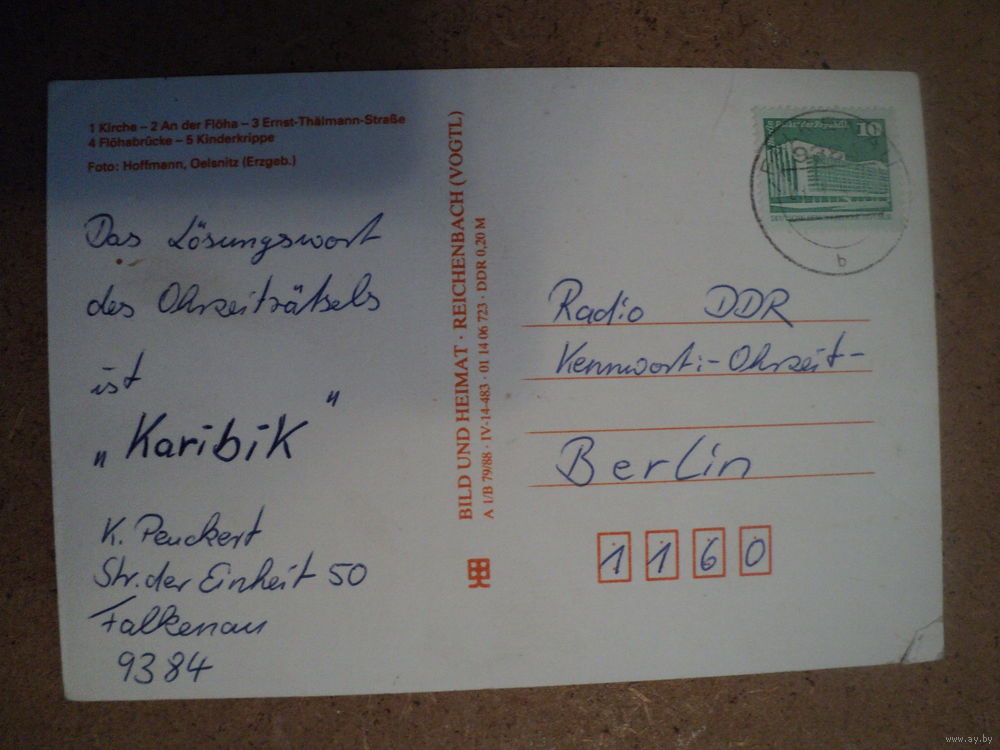 1 Kirche – 2 An der Flöha – 3 Ernst-Thälmann-Straße
4 Flöhabrücke – 5 Kinderkrippe
Foto: Hoffmann, Oelsnitz (Erzgeb.)
Das Lösungswort
des Ohrzeiträtsels
ist
„Karibik"
K. Penckert
Str. der Einheit 50
Falkenau
9384
BILD UND HEIMAT · REICHENBACH (VOGTL)
A 1/B 79/88 · IV-14-483 · 01 14 06 723 · DDR 0,20 M
10
b
Radio DDR
Kennwort:-Ohrzeit-
Berlin
1160
www.ay.by